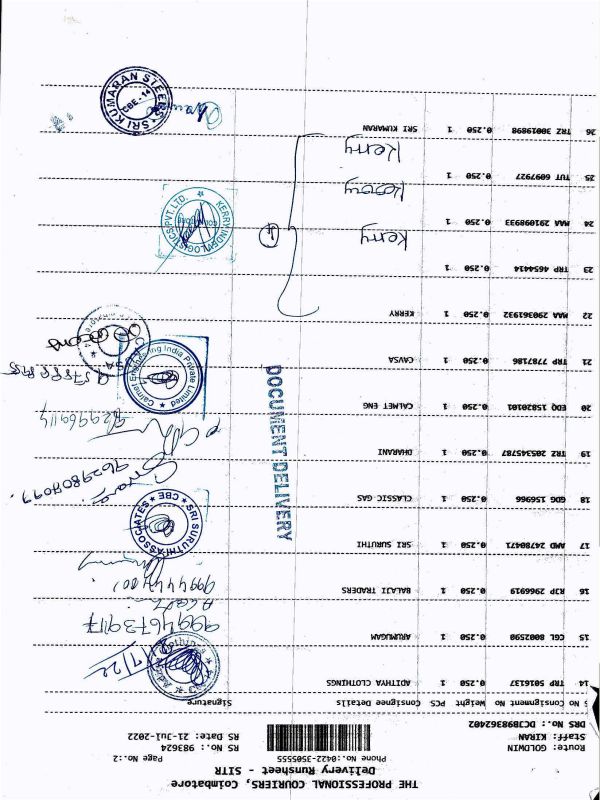 THE PROFESSIONAL COURIERS, Coimbatore
Delivery Runsheet - SITR
Phone No.:0422-3505555
Page No.:2
Route: GOLDWIN
Staff: KIRAN
DRS No.: DCJB898362402
RS No.: 983624
RS Date: 21-Jul-2022
S No Consignment No Weight PCS Consignee Details Signature
14 TRP 5016137 0.250 1 ADITHYA CLOTHINGS
15 CGL 8002590 0.250 1 ARUMUGAM
9994673917
16 RJP 2966919 0.250 1 BALAJI TRADERS
17 AMD 24780471 0.250 1 SRI SURUTHI
SRI SURUTHI ASSOCIATES ★ CBE ★
18 GDG 156966 0.250 1 CLASSIC GAS
9629807077
19 TRZ 205345787 0.250 1 DHARANI
20 EDQ 15820101 0.250 1 CALMET ENG
Calmet Engineering India Private Limited
21 TRP 7787186 0.250 1 CAVSA
22 MAA 290361932 0.250 1 KERRY
23 TRP 4654414 0.250 1
Kerry
24 MAA 291098933 0.250 1
Kerry
KERRY INDEV LOGISTICS PVT. LTD.
4
25 TUT 6097927 0.250 1
Kerry
26 TRZ 30019898 0.250 1 SRI KUMARAN
SRI KUMARAN STEELS
CBE-14
DOCUMENT DELIVERY